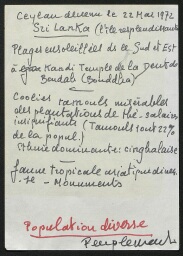 Ceylan devenu le 22 Mai 1972
Sri Lanka (l'île resplendissante)
Plages ensoleillées de le Sud et Est
à Kandi Temple de la dent de
Boudah (Bouddha)
Coolies tamouls misérables
des plantations de thé - salaires
insignifiants (Tamouls sont 22%
de la popul.)
Ethnie dominante: cinghalaise
faune tropicale asiatique
- Monuments
Population diverse
Peuplement